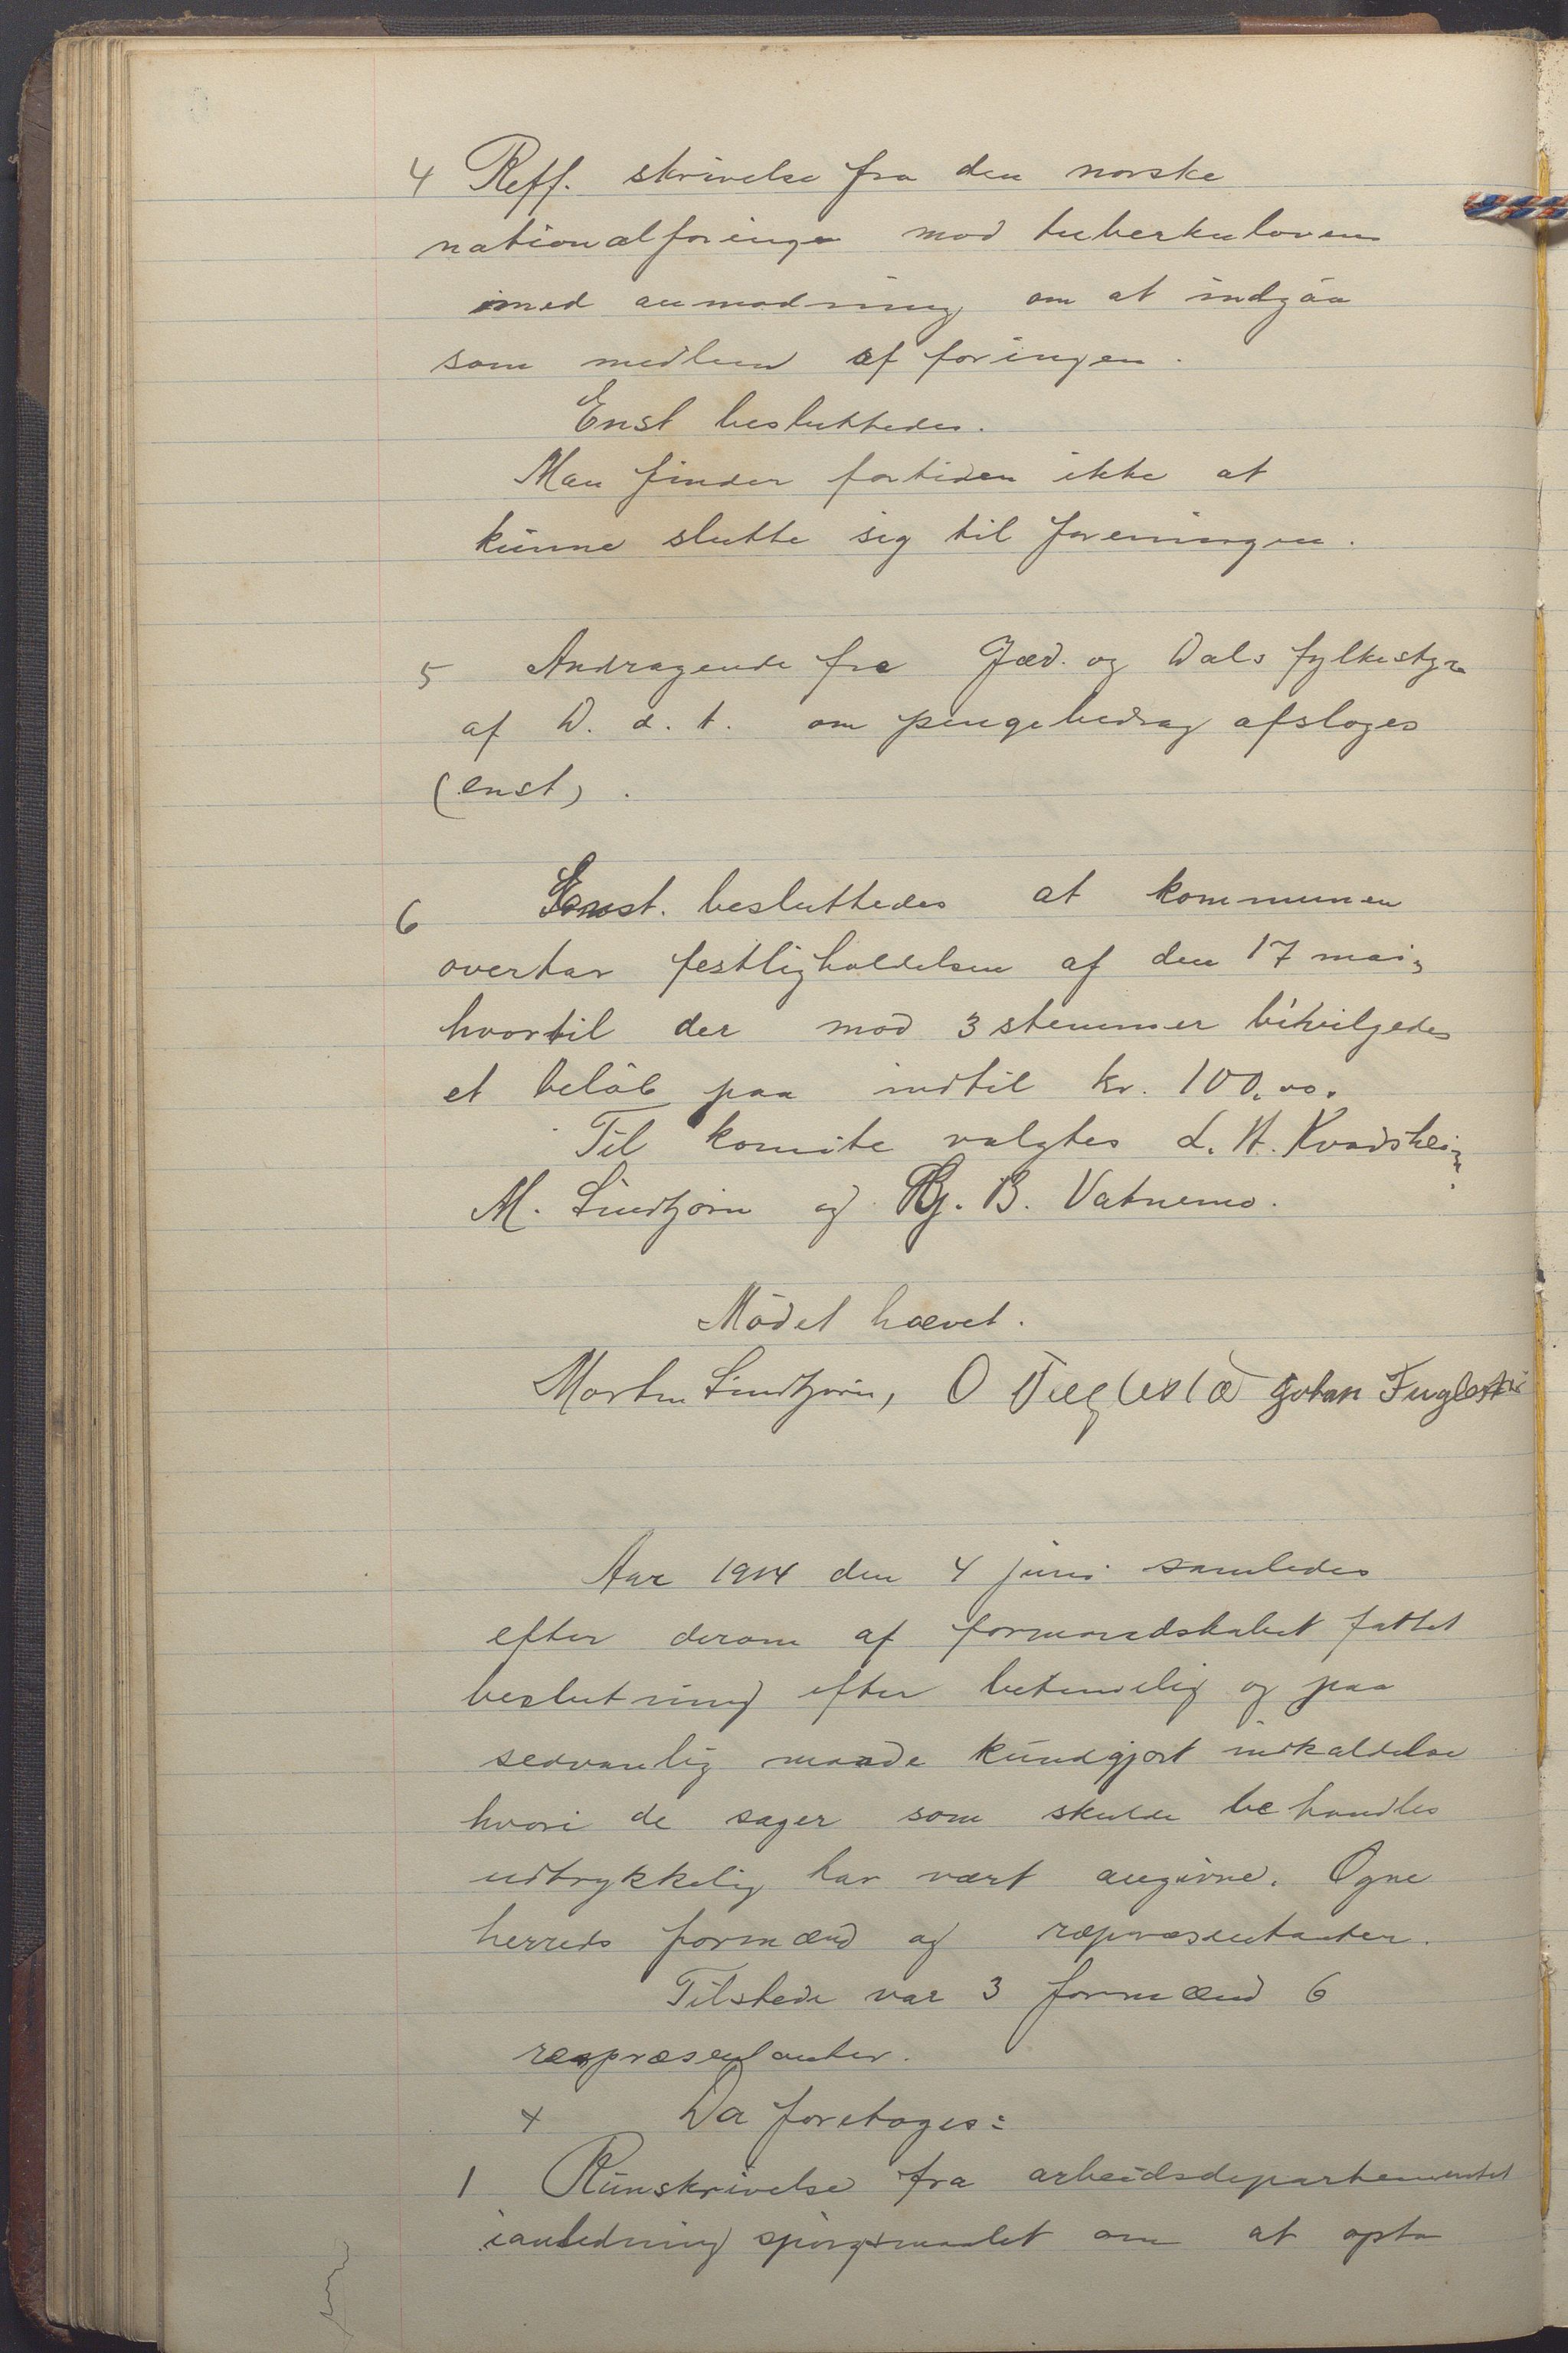 4 Reff. skrivelse fra den norske
nationalforinge mod tuberkulosen
med anmodning om at indgåa
som medlem af foringen.
Enst besluttedes.
Man finder fortiden ikke at
kunne slutte sig til foreningen.
5 Andragende fra Jæd. og Dals fylkestyre
af D. d. t. om pengebedrag afsloges
(enst).
6 Enst. besluttedes at kommunen
overtar festligholdelsen af den 17 mai,
hvortil der mod 3 stemmer bevilgedes
et beløb paa indtil kr. 100,00.
Til komite valgtes L. H. Kvadsheim
M. Lindtjørn og Bj. B. Vatnemo.
Mødet hævet.
Morten Lindtjørn, O Fuglestad Johan Fuglestad
Aar 1914 den 4 juni samledes
efter derom af formandskabet fattet
beslutning efter betimelig og paa
sedvanlig maade kundgjort indkaldelse
hvori de sager som skulde behandles
udtrykkelig har vært angivne. Ogne
herreds formænd og repræsentanter.
Tilstede var 3 formænd 6
repræsentanter.
+ Da foretoges:
1 Runskrivelse fra arbeidsdepartementet
ianledning spørgsmaalet om at opta